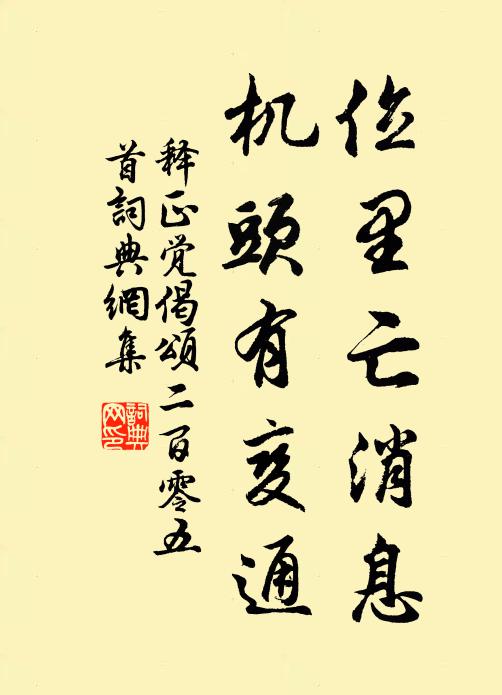 位里亡消息
机頭有变通
释正觉偈頌二百零五
首詞典網集
詞典网印